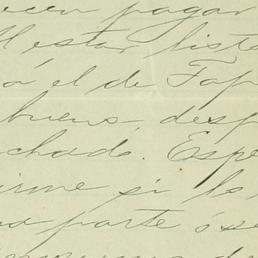 pagar
estar listo
ó el de Tap
bueno, desp
chado. Espe
irme si lo
parte ó se